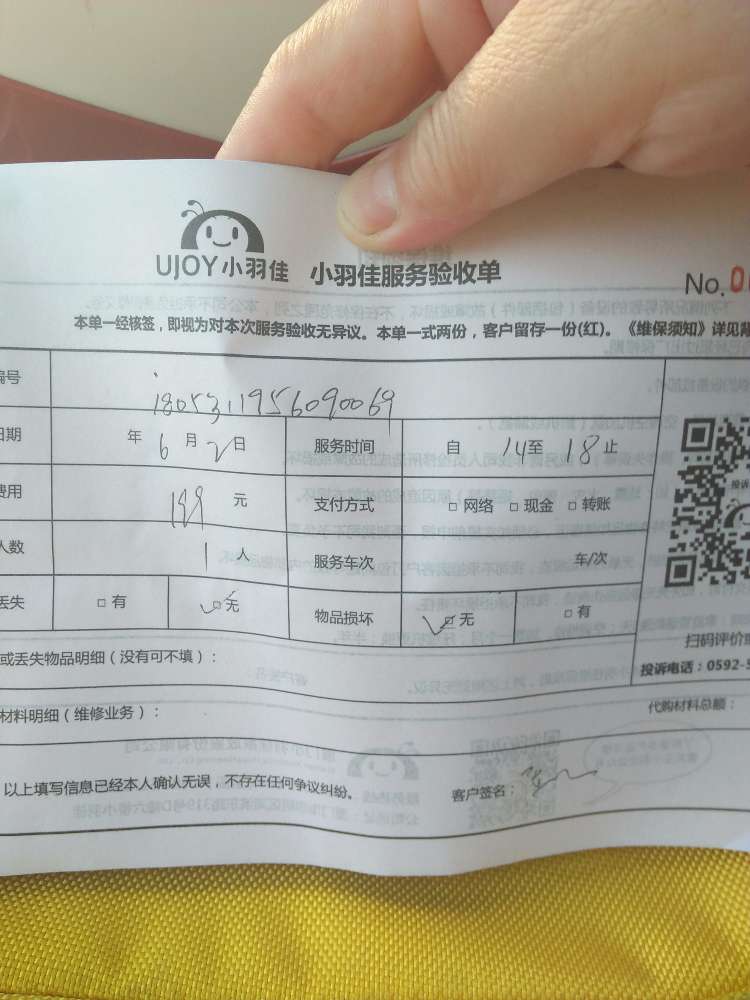 UJOY小羽佳 小羽佳服务验收单
No.
本单一经核签，即视为对本次服务验收无异议。本单一式两份，客户留存一份(红)。《维保须知》详见背
编号 1805311956090069
日期 年 6 月 2 日 服务时间 自 14 至 18 止
费用 199 元 支付方式 □ 网络 □ 现金 □ 转账
人数 1 人 服务车次 车/次
丢失 □ 有 ☑ 无 物品损坏 ☑ 无 □ 有
扫码评价
投诉电话：0592-5
或丢失物品明细（没有可不填）：
材料明细（维修业务）： 代购材料总额：
以上填写信息已经本人确认无误，不存在任何争议纠纷。 客户签名：